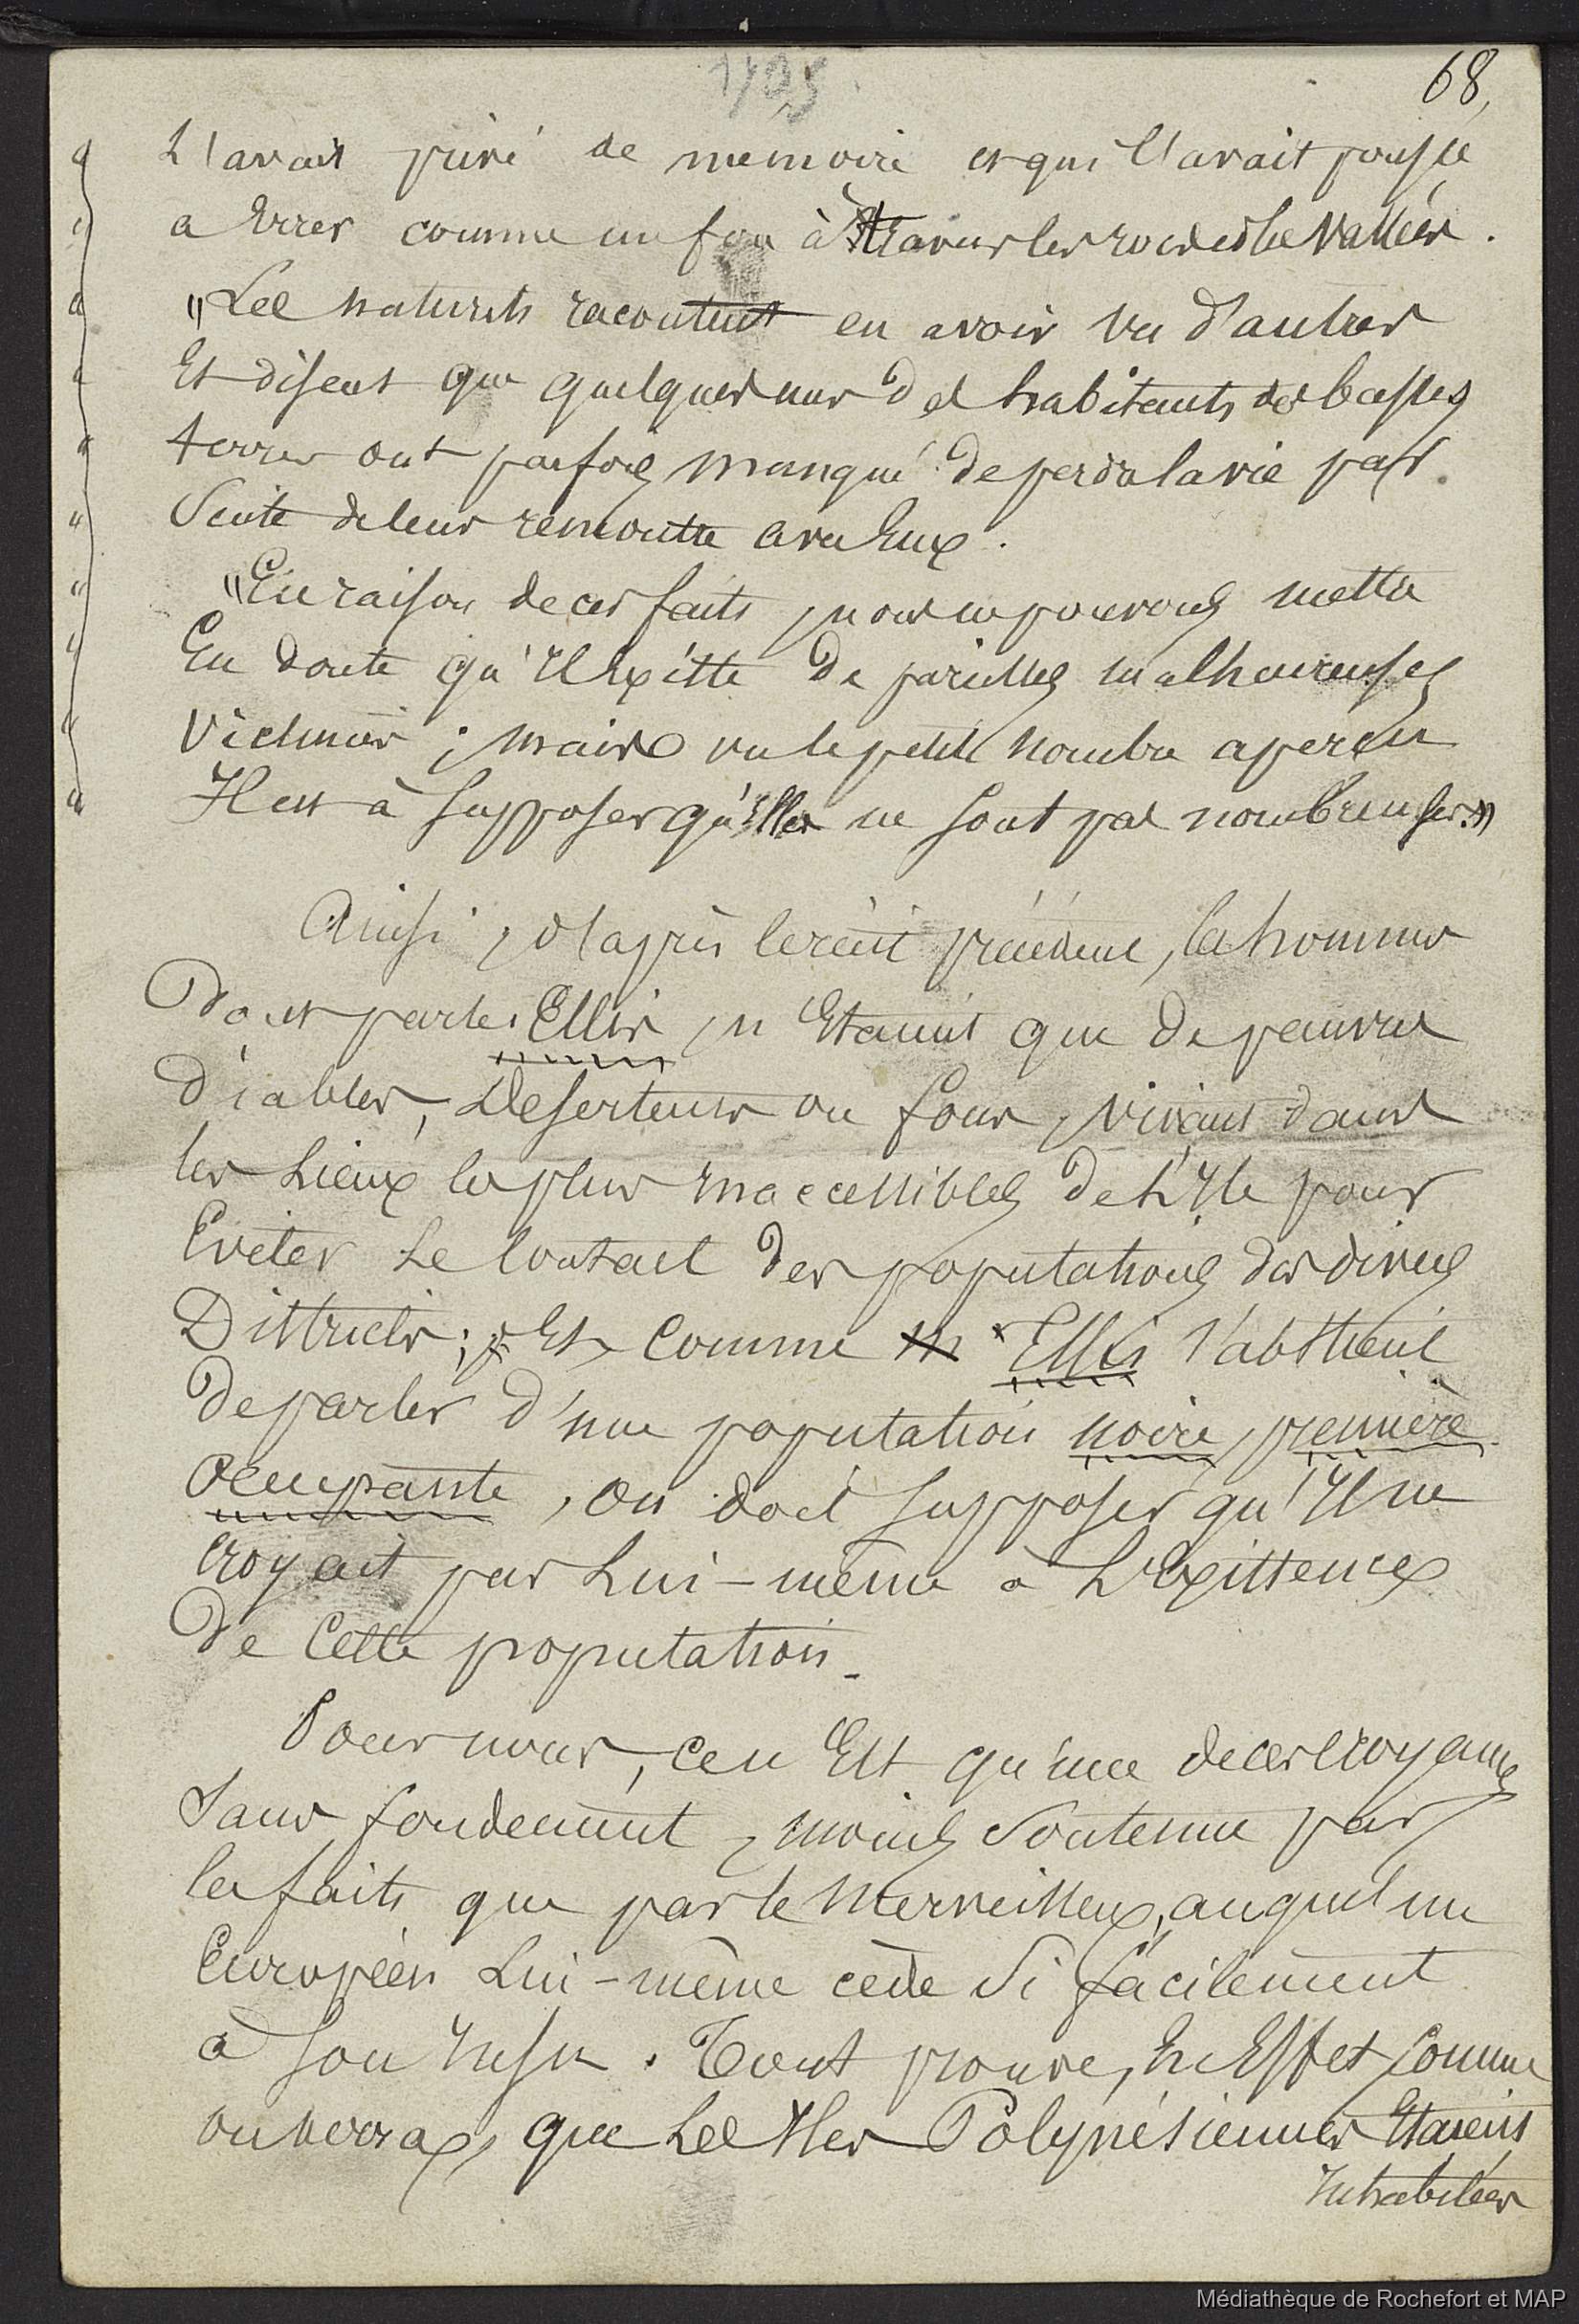 1705
68,
L'avait privé de mémoire et qui l'avait poussé
a Errer comme un fou à travers les rocs et les vallées.
"Les naturels racontent en avoir vu d'autres
Et disent que quelques uns des habitants des basses
terres ont parfois manqué de perdre la vie par
Suite de leur rencontre avec Eux.
"En raison de ces faits, nous ne pouvons mettre
En doute qu'Il Existe de pareilles malheureuses
Victimes ; mais vu le petit nombre aperçu
Il est à supposer qu'Elles ne sont pas nombreuses."
Ainsi, d'après le récit précédent, les hommes
Dont parle Ellis, n'Etaient que de pauvres
Diables, Déserteurs ou fous, vivant dans
les Lieux les plus Inaccessibles de L'Ile pour
Eviter Le Contact des populations des divers
Districts ; Et, comme Ellis s'abstient
De parler d'une population noire, première
occupante, on doit supposer qu'Il ne
croyait pas Lui-même à L'Existence
De Cette population.
Pour nous, ce n'Est qu'une de ces croyances
Sans fondement, moins soutenue par
les faits que par le Merveilleux, auquel un
Européen Lui-même cède si facilement
à son Insu. Tout prouve, En Effet, comme
on verra, que Les Iles Polynésiennes Etaient
Inhabitées
Médiathèque de Rochefort et MAP